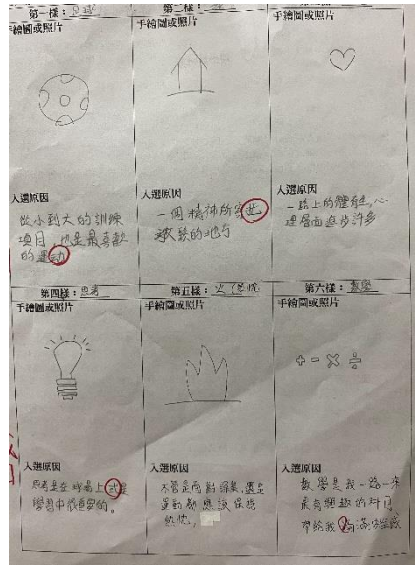 第一樣：足球
手繪圖或照片
入選原因
從小到大的訓練
項目，也是最喜歡
的運动
第二樣：
手繪圖或照片
入選原因
一個精神所寄
的地方
手繪圖或照片
入選原因
一路上的體
理層面進步許多
第四樣：思考
手繪圖或照片
入選原因
思考是在球場上或是
學習中很重要的。
第五樣：火（熱忱
手繪圖或照片
入選原因
不管是面對課業，還是
運動都應該保持
熱忱。
第六樣：數學
手繪圖或照片
＋－×÷
入選原因
數學是我一路以來
最有興趣的科目
帶給我 滿滿